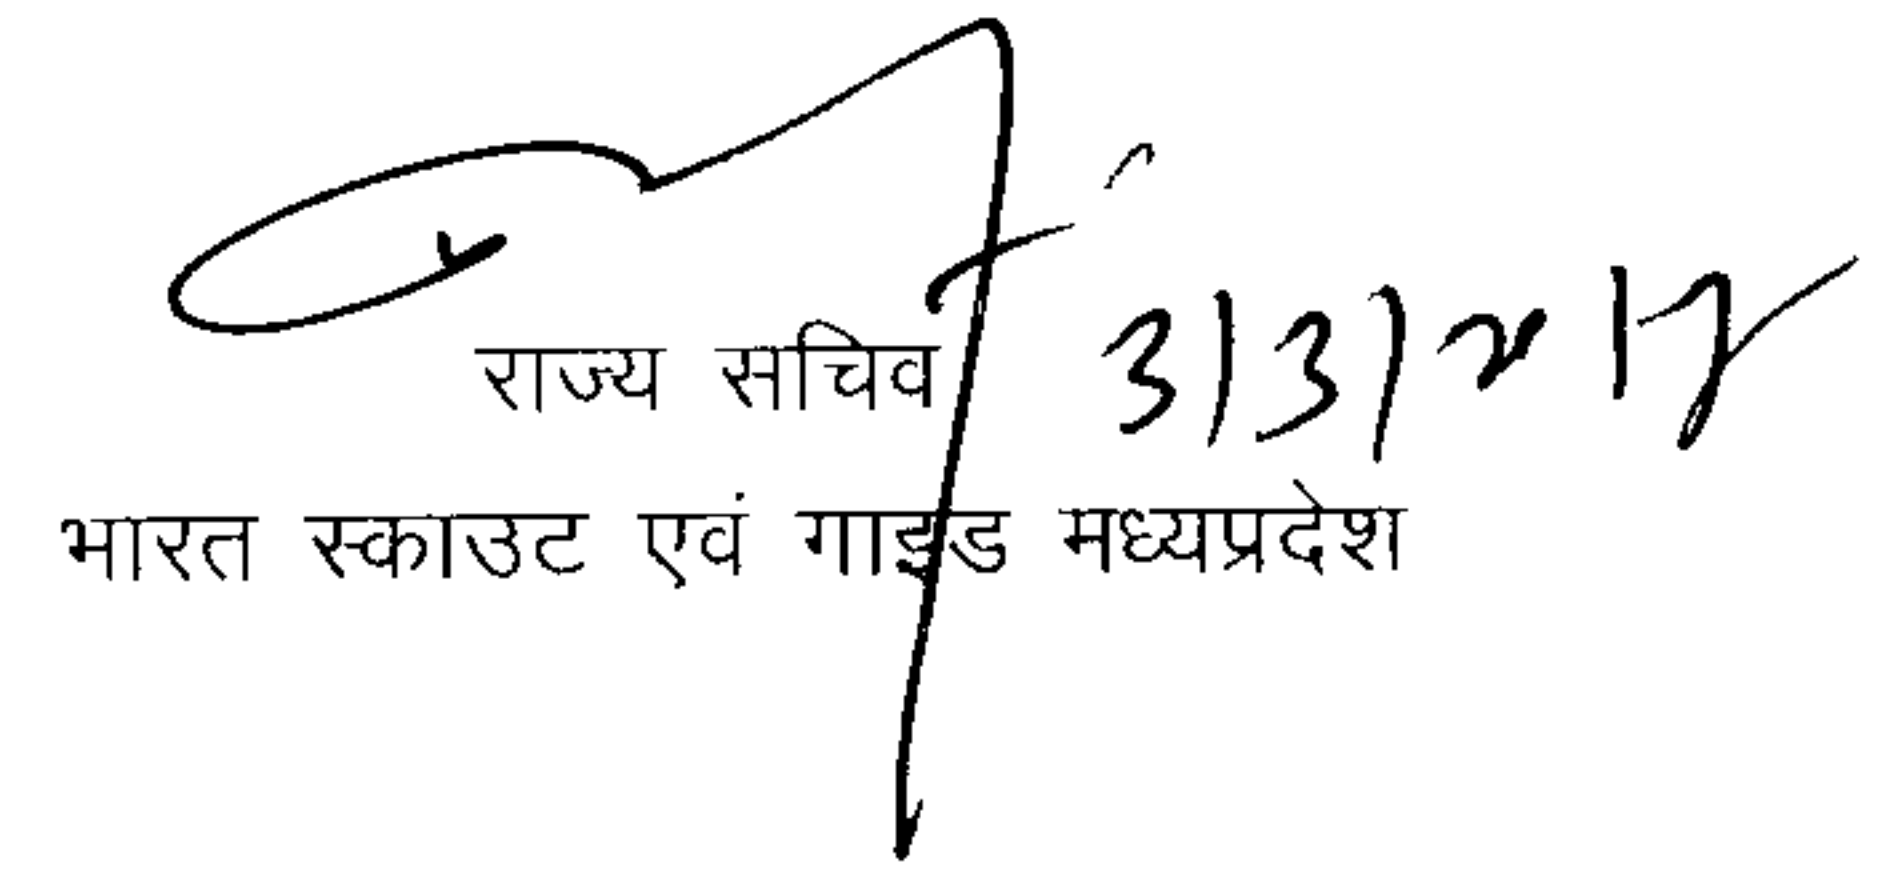 राज्य सचिव 3/3/2017
भारत स्काउट एवं गाइड मध्यप्रदेश